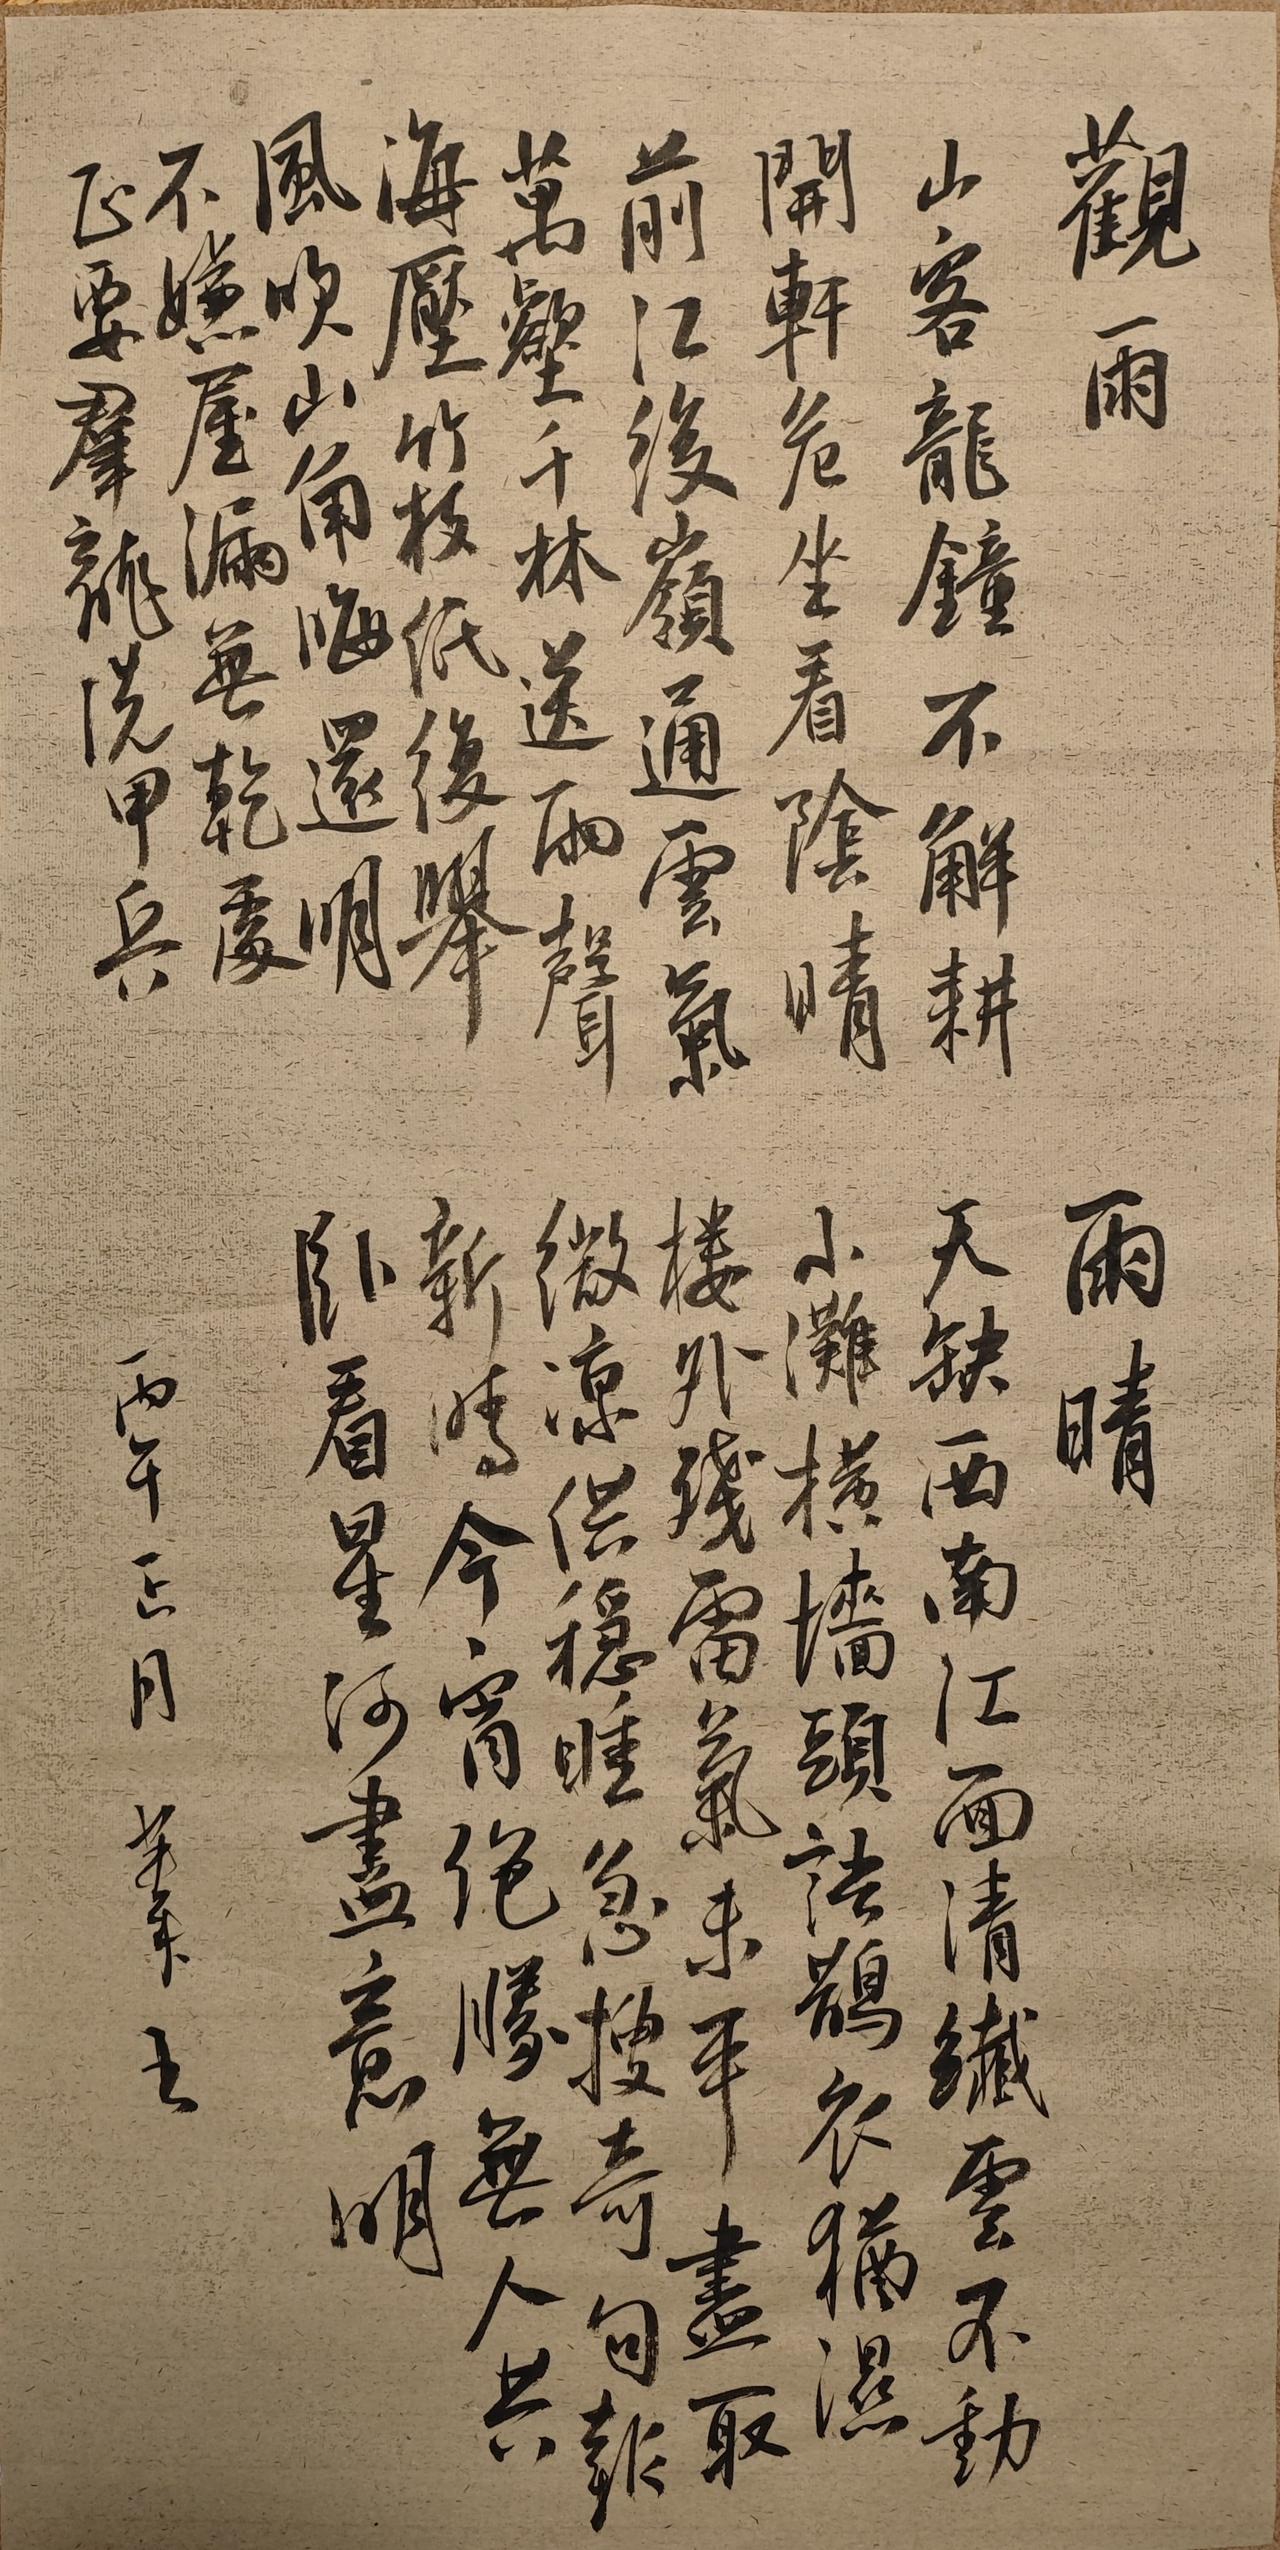 觀雨
山客龍鐘不解耕
開軒危坐看陰晴
前江後嶺通雲氣
萬壑千林送雨聲
海壓竹枝低復舉
風吹山角晦還明
不嫌屋漏無乾處
正要羣龍洗甲兵
雨晴
天缺西南江面清纖雲不動
小灘橫墻頭語鵲衣猶濕
楼外殘雷氣未平盡取
微涼供穩睡急搜奇句報
新晴今宵絕勝無人共
臥看星河盡意明
丙午正月